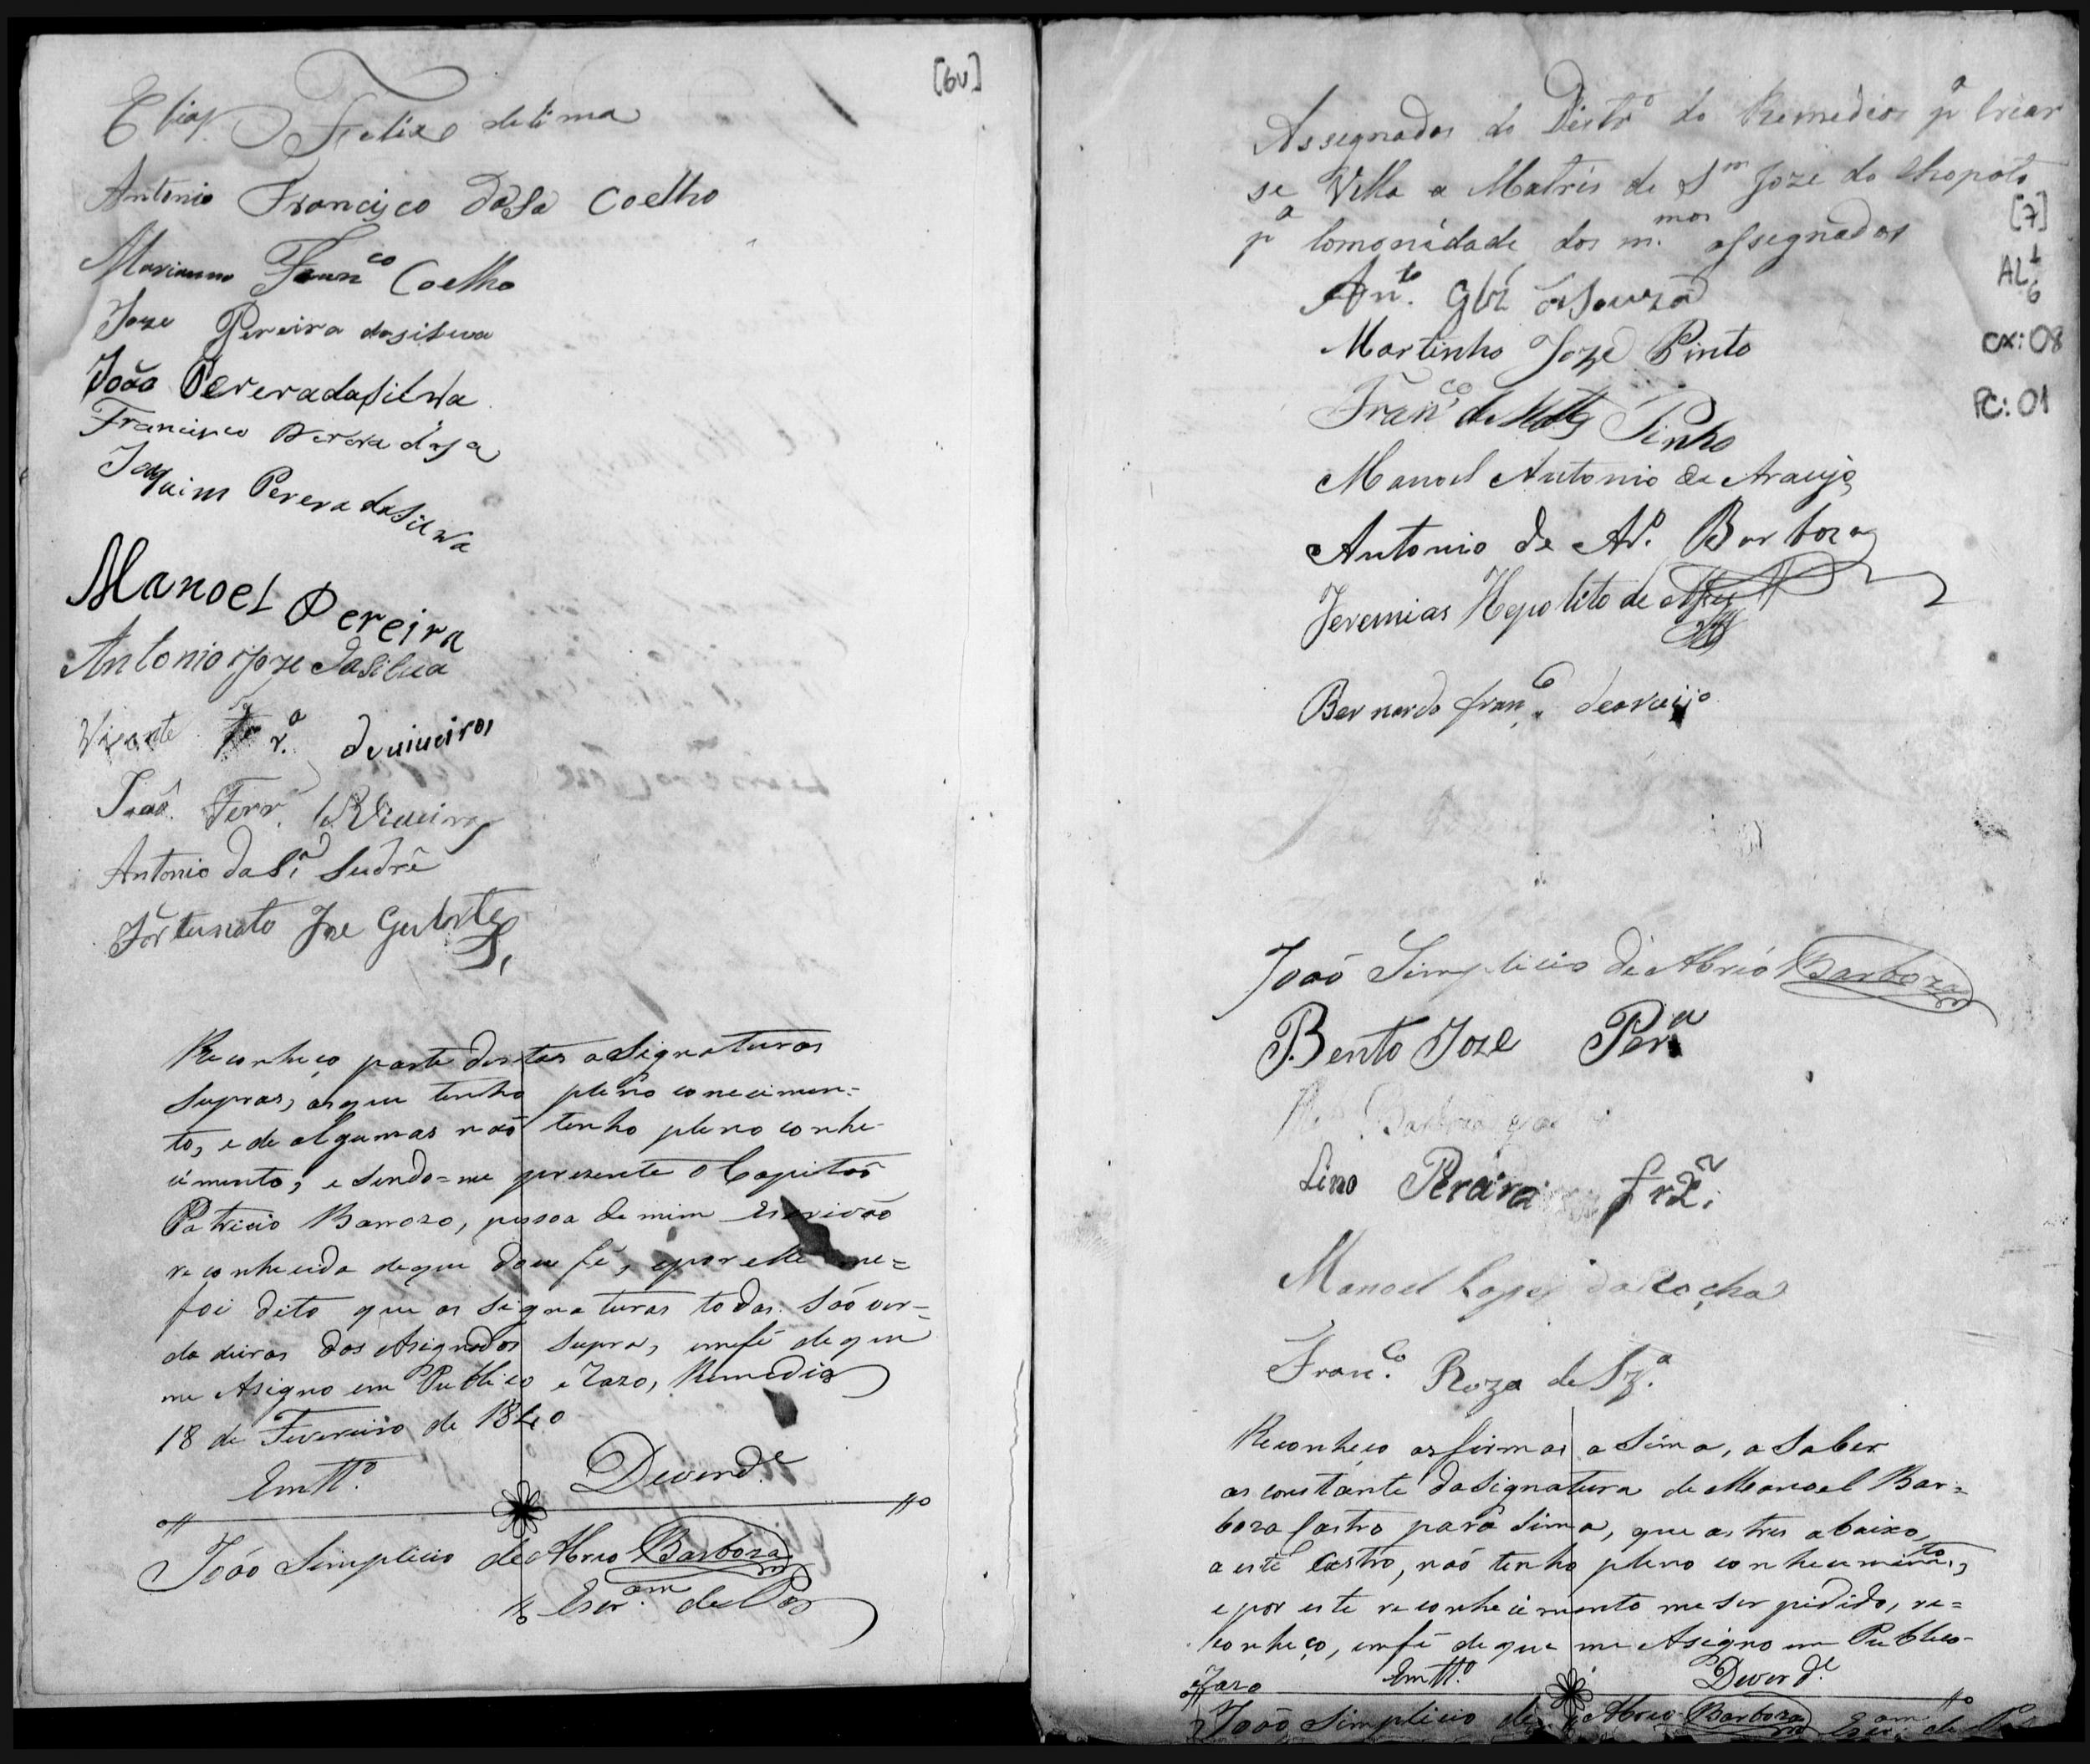 [6v]
Elias Felix de lima
Antonio Francisco da Sa Coelho
Marianno Franco Coelho
Joze Pereira dasilva
João Pereradasilva
Francisco Perera dasa
Joaquim Perera dasilva
Manoel Pereira
Antonio Joze dasilva
Vicente Ferra deviveiros
João Ferra de Viveiros
Antonio da Sa Sudré
Fortunato Joze Gularte
Reconheço parte destas asignaturas
supras, as que tenho pleno conecimen=
to, e de algumas não tenho pleno conhe-
cimento, e sendo=me prezente o Capitão
Patricio Barrozo, pessoa de mim Escrivão
reconhecida de que dou fé, e por elle me=
foi dito que as signaturas todas são ver=
dadeiras dos Asignados supra, em fé de que
me Asigno em Publico e razo, Remedios
18 de Fevereiro de 1840
Em tto. Deverde.
João Simplicio de Abreo Barboza
Escram de Paz
Assignados do Distro do Remédios pa criar
se Villa a Matris de Sm Joze do Chopoto
pa Comonidade dos m.mos assignados
[7]
AL 1
6
cx: 08
PC: 01
Anto. Glz de Souza
Martinho Joze Pinto
Franco de Pinho
Manoel Antonio de Araujo
Antonio de Ao. Barboza
Jeremias Hepolito de
Bernardo franco. dearaujo
João Simplicio de Abreo Barboza
Bento Joze Pera
Barboza
Lino Pereira frz.
Manoel Lopes da Rocha
Franco. Roza de Sza.
Reconheço as firmas a sima, a saber
as constante da signatura de Manoel Bar=
boza Castro para sima, que as tres abaixo
a este Castro, não tenho pleno conhecimento,
e por este reconhecimento me ser pidido, re=
conheço, em fé de que me Asigno em Publico
e razo Em tto. Deverde.
João Simplicio de Abreo Barboza Escram de Paz